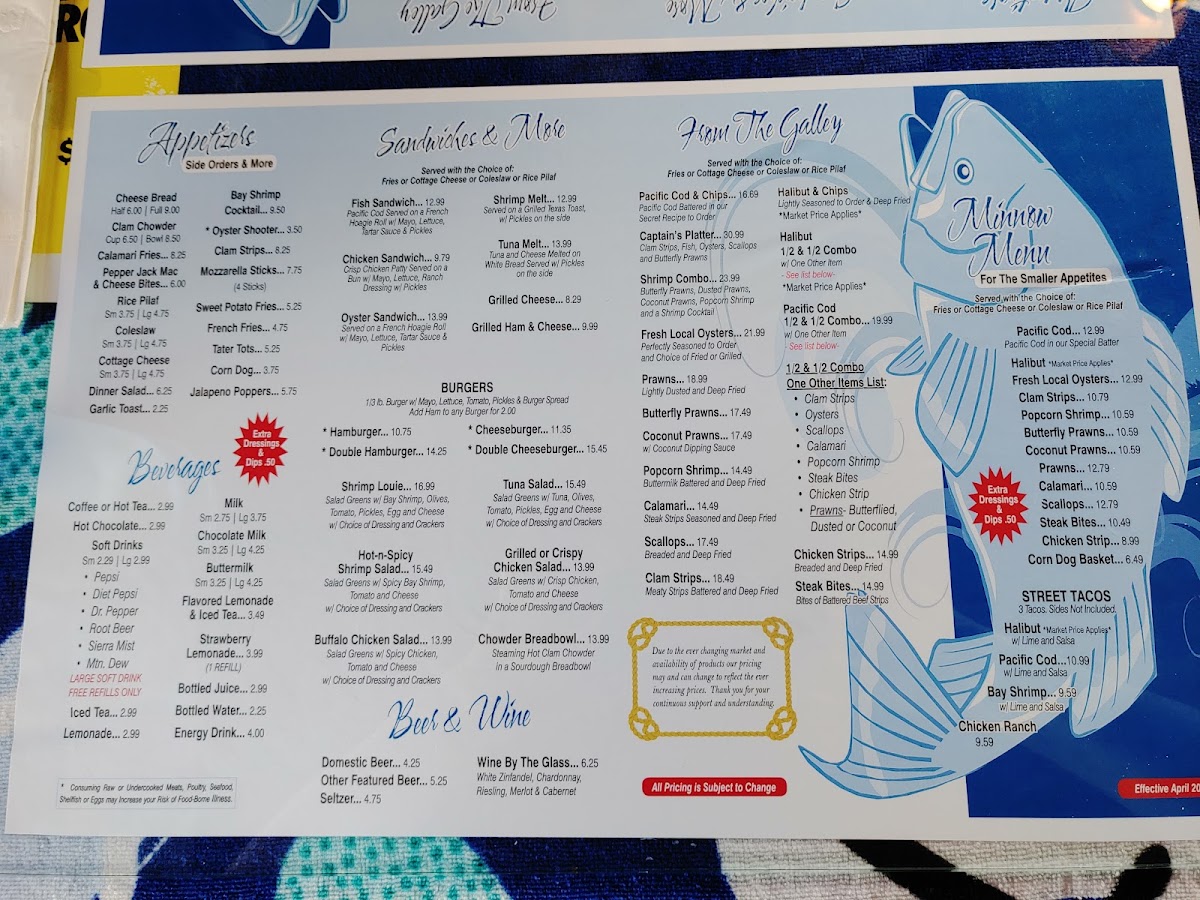 From The Galley
Appetizers
Side Orders & More
Cheese Bread
Half 6.00 | Full 9.00
Clam Chowder
Cup 6.50 | Bowl 8.50
Calamari Fries... 8.25
Pepper Jack Mac
& Cheese Bites... 6.00
Rice Pilaf
Sm 3.75 | Lg 4.75
Coleslaw
Sm 3.75 | Lg 4.75
Cottage Cheese
Sm 3.75 | Lg 4.75
Dinner Salad... 6.25
Garlic Toast... 2.25
Bay Shrimp
Cocktail... 9.50
* Oyster Shooter... 3.50
Clam Strips... 8.25
Mozzarella Sticks... 7.75
(4 Sticks)
Sweet Potato Fries... 5.25
French Fries... 4.75
Tater Tots... 5.25
Corn Dog... 3.75
Jalapeno Poppers... 5.75
Extra
Dressings
&
Dips .50
Beverages
Coffee or Hot Tea... 2.99
Hot Chocolate... 2.99
Soft Drinks
Sm 2.29 | Lg 2.99
• Pepsi
• Diet Pepsi
• Dr. Pepper
• Root Beer
• Sierra Mist
• Mtn. Dew
LARGE SOFT DRINK
FREE REFILLS ONLY
Iced Tea... 2.99
Lemonade... 2.99
Milk
Sm 2.75 | Lg 3.75
Chocolate Milk
Sm 3.25 | Lg 4.25
Buttermilk
Sm 3.25 | Lg 4.25
Flavored Lemonade
& Iced Tea... 3.49
Strawberry
Lemonade... 3.99
(1 REFILL)
Bottled Juice... 2.99
Bottled Water... 2.25
Energy Drink... 4.00
* Consuming Raw or Undercooked Meats, Poultry, Seafood,
Shellfish or Eggs may Increase your Risk of Food-Borne Illness.
Sandwiches & More
Served with the Choice of:
Fries or Cottage Cheese or Coleslaw or Rice Pilaf
Fish Sandwich... 12.99
Pacific Cod Served on a French
Hoagie Roll w/ Mayo, Lettuce,
Tartar Sauce & Pickles
Chicken Sandwich... 9.79
Crisp Chicken Patty Served on a
Bun w/ Mayo, Lettuce, Ranch
Dressing w/ Pickles
Oyster Sandwich... 13.99
Served on a French Hoagie Roll
w/ Mayo, Lettuce, Tartar Sauce &
Pickles
Shrimp Melt... 12.99
Served on a Grilled Texas Toast,
w/ Pickles on the side
Tuna Melt... 13.99
Tuna and Cheese Melted on
White Bread Served w/ Pickles
on the side
Grilled Cheese... 8.29
Grilled Ham & Cheese... 9.99
BURGERS
1/3 lb. Burger w/ Mayo, Lettuce, Tomato, Pickles & Burger Spread
Add Ham to any Burger for 2.00
* Hamburger... 10.75
* Double Hamburger... 14.25
* Cheeseburger... 11.35
* Double Cheeseburger... 15.45
Shrimp Louie... 16.99
Salad Greens w/ Bay Shrimp, Olives,
Tomato, Pickles, Egg and Cheese
w/ Choice of Dressing and Crackers
Hot-n-Spicy
Shrimp Salad... 15.49
Salad Greens w/ Spicy Bay Shrimp,
Tomato and Cheese
w/ Choice of Dressing and Crackers
Buffalo Chicken Salad... 13.99
Salad Greens w/ Spicy Chicken,
Tomato and Cheese
w/ Choice of Dressing and Crackers
Tuna Salad... 15.49
Salad Greens w/ Tuna, Olives,
Tomato, Pickles, Egg and Cheese
w/ Choice of Dressing and Crackers
Grilled or Crispy
Chicken Salad... 13.99
Salad Greens w/ Crisp Chicken,
Tomato and Cheese
w/ Choice of Dressing and Crackers
Chowder Breadbowl... 13.99
Steaming Hot Clam Chowder
in a Sourdough Breadbowl
Beer & Wine
Domestic Beer... 4.25
Other Featured Beer... 5.25
Seltzer... 4.75
Wine By The Glass... 6.25
White Zinfandel, Chardonnay,
Riesling, Merlot & Cabernet
From The Galley
Served with the Choice of:
Fries or Cottage Cheese or Coleslaw or Rice Pilaf
Pacific Cod & Chips... 16.69
Pacific Cod Battered in our
Secret Recipe to Order
Captain's Platter... 30.99
Clam Strips, Fish, Oysters, Scallops
and Butterfly Prawns
Shrimp Combo... 23.99
Butterfly Prawns, Dusted Prawns,
Coconut Prawns, Popcorn Shrimp
and a Shrimp Cocktail
Fresh Local Oysters... 21.99
Perfectly Seasoned to Order
and Choice of Fried or Grilled
Prawns... 18.99
Lightly Dusted and Deep Fried
Butterfly Prawns... 17.49
Coconut Prawns... 17.49
w/ Coconut Dipping Sauce
Popcorn Shrimp... 14.49
Buttermilk Battered and Deep Fried
Calamari... 14.49
Steak Strips Seasoned and Deep Fried
Scallops... 17.49
Breaded and Deep Fried
Clam Strips... 18.49
Meaty Strips Battered and Deep Fried
Halibut & Chips
Lightly Seasoned to Order & Deep Fried
*Market Price Applies*
Halibut
1/2 & 1/2 Combo
w/ One Other Item
- See list below-
*Market Price Applies*
Pacific Cod
1/2 & 1/2 Combo... 19.99
w/ One Other Item
- See list below-
1/2 & 1/2 Combo
One Other Items List:
• Clam Strips
• Oysters
• Scallops
• Calamari
• Popcorn Shrimp
• Steak Bites
• Chicken Strip
• Prawns- Butterflied,
Dusted or Coconut
Chicken Strips... 14.99
Breaded and Deep Fried
Steak Bites... 14.99
Bites of Battered Beef Strips
Due to the ever changing market and
availability of products our pricing
may and can change to reflect the ever
increasing prices. Thank you for your
continuous support and understanding.
All Pricing is Subject to Change
Minnow
Menu
For The Smaller Appetites
Served with the Choice of:
Fries or Cottage Cheese or Coleslaw or Rice Pilaf
Pacific Cod... 12.99
Pacific Cod in our Special Batter
Halibut *Market Price Applies*
Fresh Local Oysters... 12.99
Clam Strips... 10.79
Popcorn Shrimp... 10.59
Butterfly Prawns... 10.59
Coconut Prawns... 10.59
Prawns... 12.79
Calamari... 10.59
Scallops... 12.79
Steak Bites... 10.49
Chicken Strip... 8.99
Corn Dog Basket... 6.49
Extra
Dressings
&
Dips .50
STREET TACOS
3 Tacos. Sides Not Included.
Halibut *Market Price Applies*
w/ Lime and Salsa
Pacific Cod...10.99
w/ Lime and Salsa
Bay Shrimp... 9.59
w/ Lime and Salsa
Chicken Ranch
9.59
Effective April 20